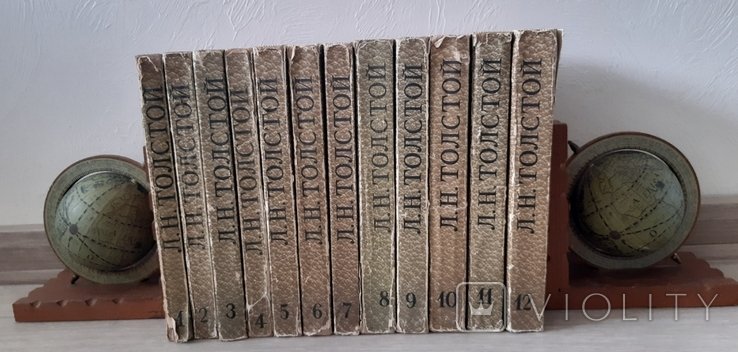 Л.Н.ТОЛСТОЙ
1
Л.Н.ТОЛСТОЙ
2
Л.Н.ТОЛСТОЙ
3
Л.Н.ТОЛСТОЙ
4
Л.Н.ТОЛСТОЙ
5
Л.Н.ТОЛСТОЙ
6
Л.Н.ТОЛСТОЙ
7
Л.Н.ТОЛСТОЙ
8
Л.Н.ТОЛСТОЙ
9
Л.Н.ТОЛСТОЙ
10
Л.Н.ТОЛСТОЙ
11
Л.Н.ТОЛСТОЙ
12
VIOLITY